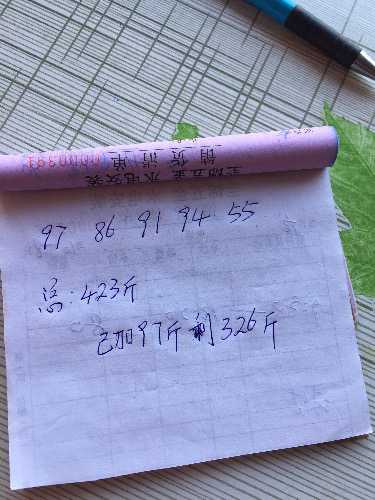 销货清单
97 86 91 94 55
423斤
已加97斤 剩326斤